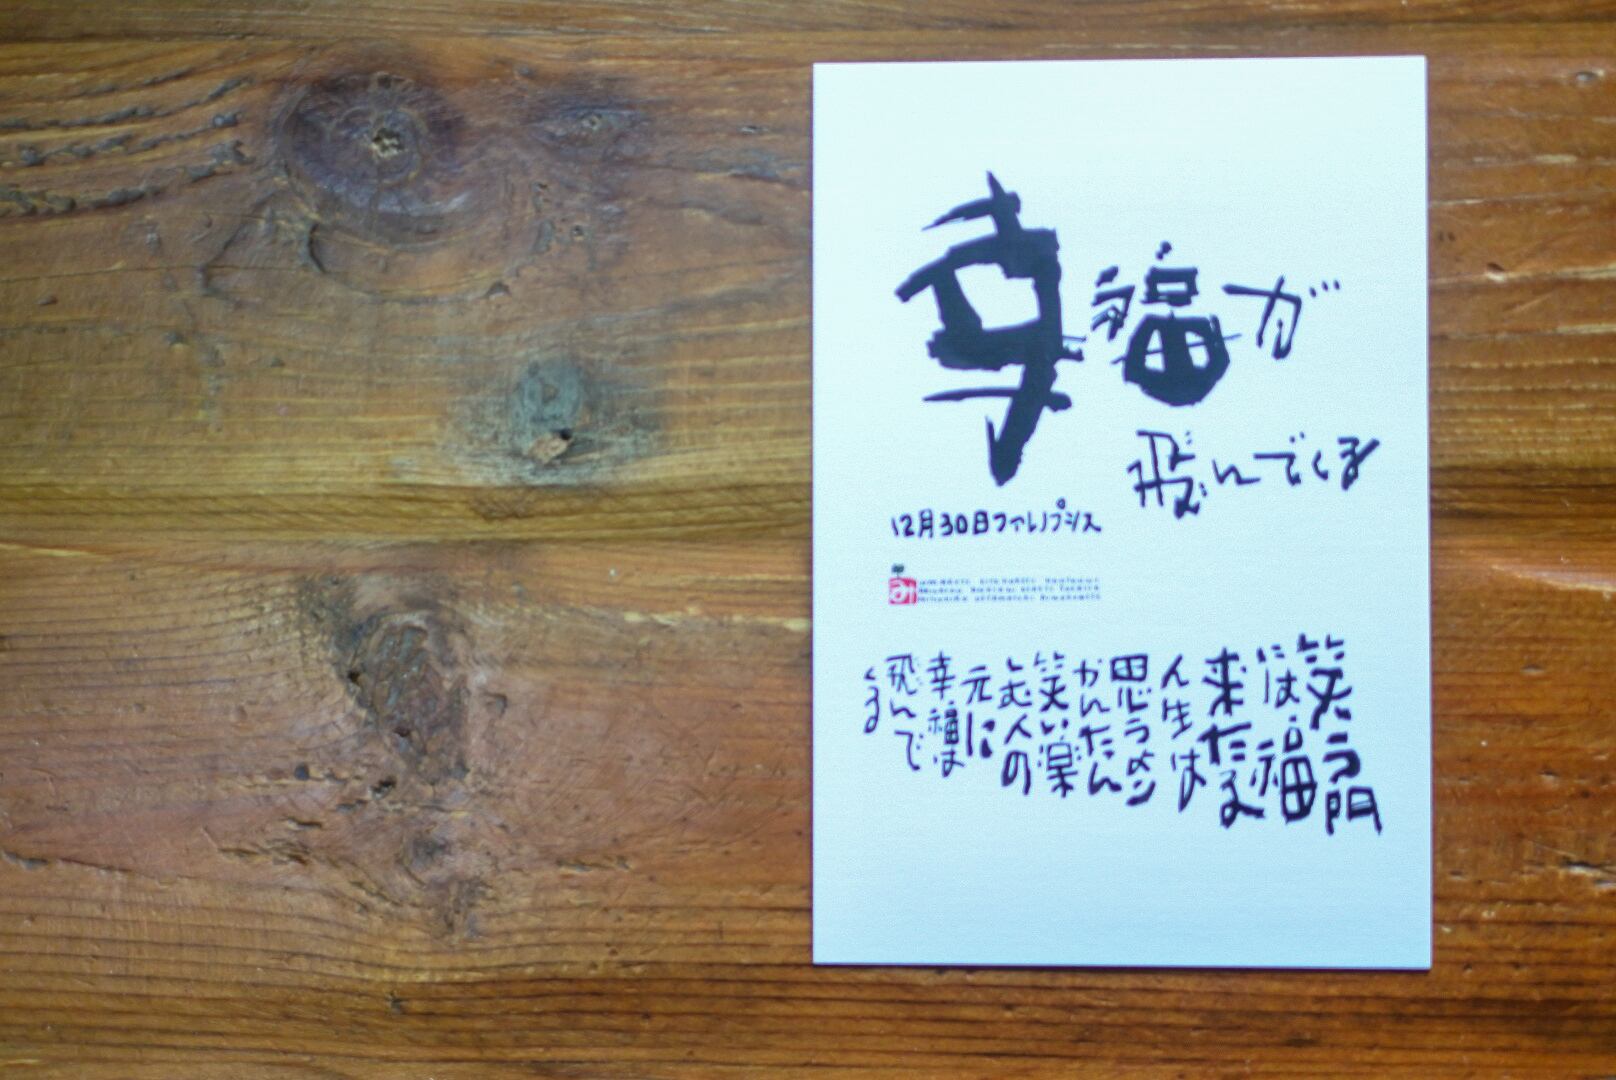 幸福が
飛んでくる
12月30日ファレノプシス
み
笑う門
には福
来たる
人生は
思うめン
かんたん
笑い楽
しむ人の
元に
幸福は
飛んで
くる